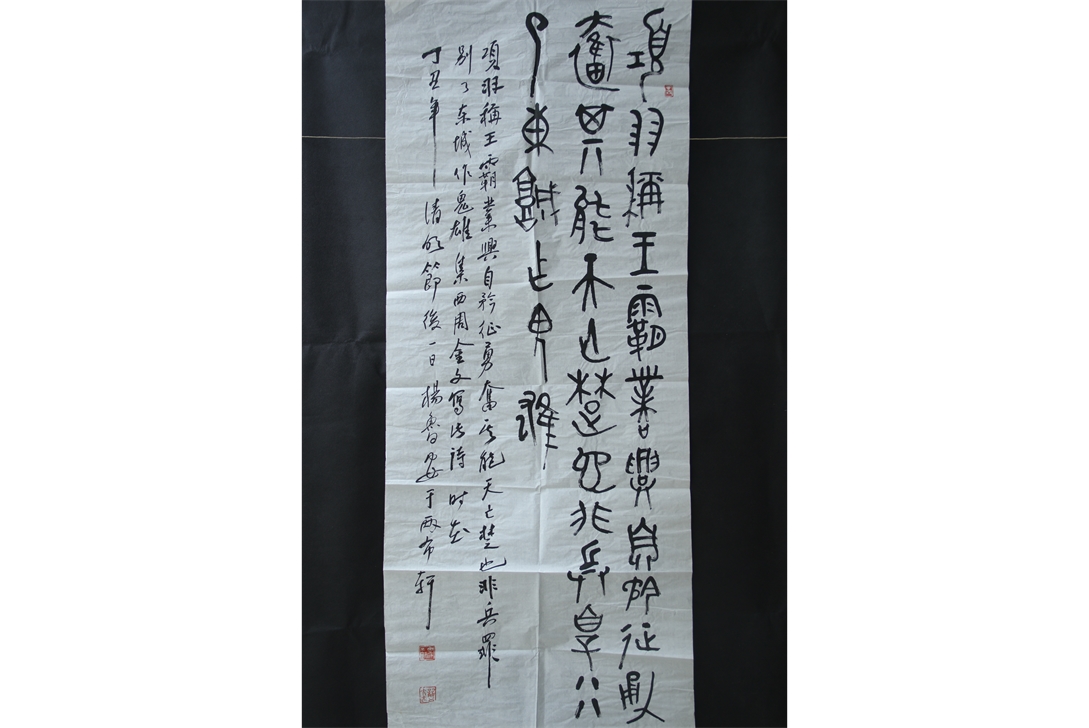 項羽稱王霸業興自矜征勇
奮其能天亡楚也非兵辠𠔁
了東城作鬼雄
項羽稱王霸業興自矜征勇奮其能天亡楚也非兵罪
别了东城作鬼雄集西周金文寫此詩时在
丁丑年清明節後一日楊魯安于兩布軒